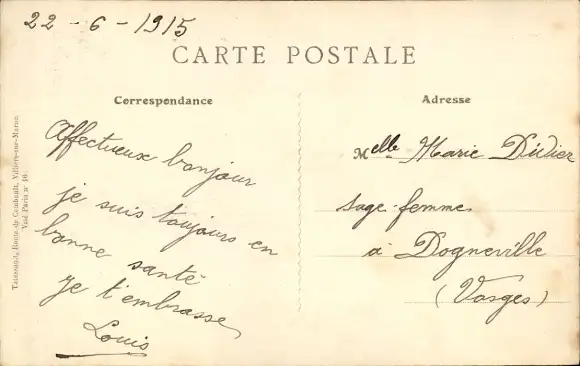 22 - 6 - 1915
CARTE POSTALE
Correspondance
Affectueux bonjour
je suis toujours en
bonne santé
Je t'embrasse
Louis
Adresse
Melle Marie Didier
sage-femme
à Dogneville
(Vosges)
Villiers-sur-Marne
Visé Paris nº